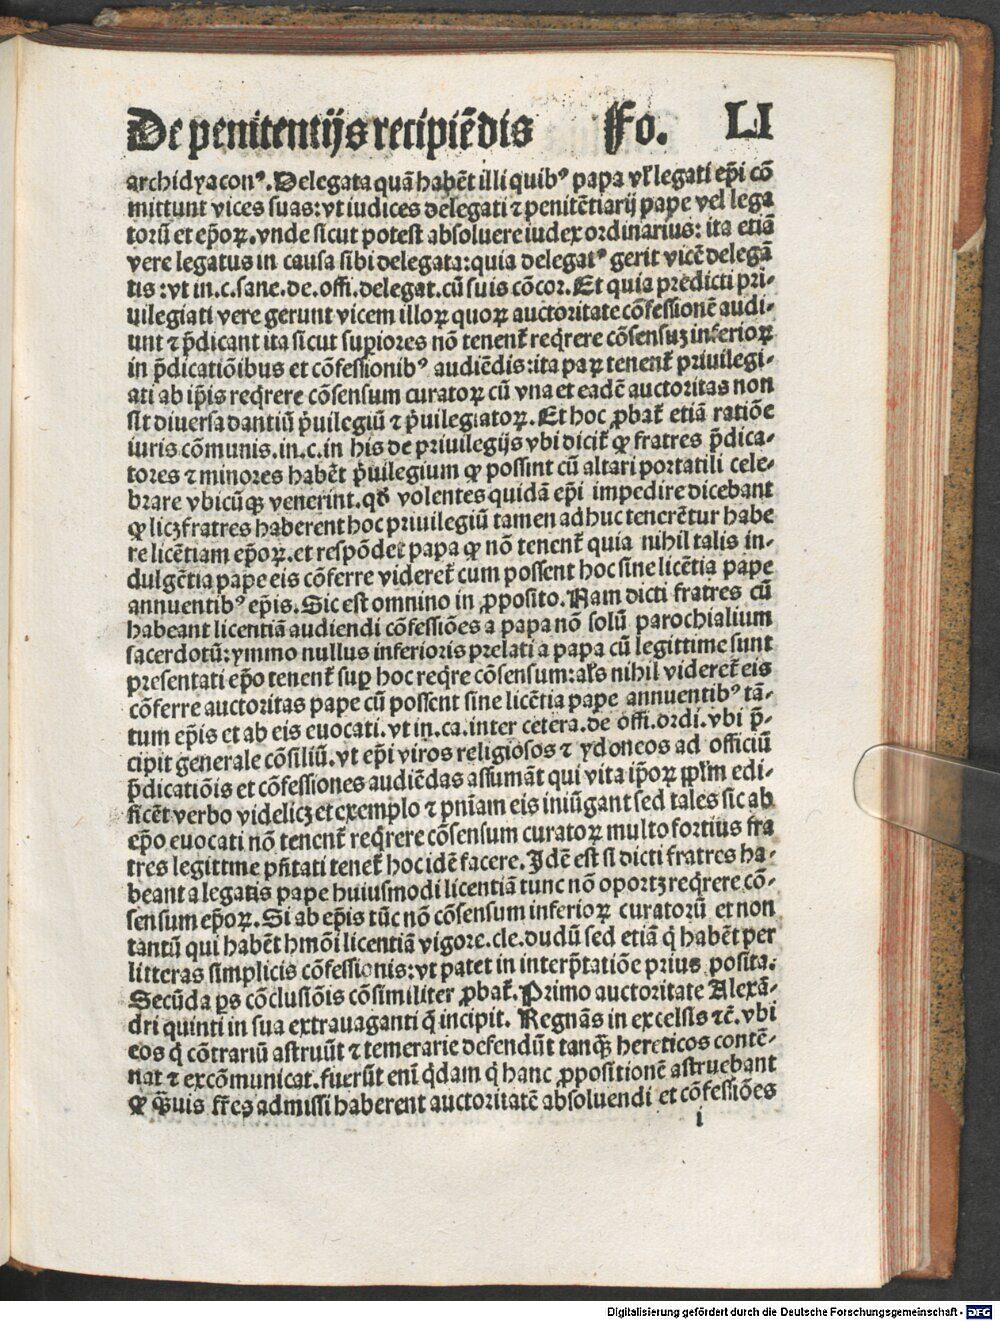 De penitentijs recipiẽdis Fo. LI
archidyaconꝰ. Delegata quã habẽt illi quibꝰ papa vl̃ legati ep̃i cõ
mittunt vices suas: vt iudices delegati ⁊ penitẽtiarij pape vel lega
torũ et ep̃oꝝ. vnde sicut potest absoluere iudex ordinarius: ita etiã
vere legatus in causa sibi delegata: quia delegatꝰ gerit vicẽ delegã
tis: vt in. c. sane. de. offi. delegat. cũ suis cõcor. Et quia predicti pri⸗
uilegiati vere gerunt vicem illoꝝ quoꝝ auctoritate cõfessionẽ audi⸗
unt ⁊ p̃dicant ita sicut supiores nõ tenent̃ reqrere cõsensuz inferioꝝ
in p̃dicatiõibus et cõfessionibꝰ audiẽdis: ita paꝝ tenent̃ priuilegi⸗
ati ab ip̃is reqrere cõsensum curatoꝝ cũ vna et eadẽ auctoritas non
sit diuersa dantiũ p̃uilegiũ ⁊ p̃uilegiatoꝝ. Et hoc ꝓbat̃ etiã ratiõe
iuris cõmunis. in. c. in his de priuilegijs vbi dicit̃ ꝙ fratres p̃dica⸗
tores ⁊ minores habẽt p̃uilegium ꝙ possint cũ altari portatili cele⸗
brare vbicũqꝫ venerint. qð volentes quidã ep̃i impedire dicebant
ꝙ licꝫ fratres haberent hoc priuilegiũ tamen ad huc tenerẽtur habe
re licẽtiam ep̃oꝝ. et respõdet papa ꝙ nõ tenent̃ quia nihil talis in⸗
dulgẽtia pape eis cõferre videret̃ cum possent hoc sine licẽtia pape
annuentibꝰ ep̃is. Sic est omnino in ꝓposito. Nam dicti fratres cũ
habeant licentiã audiendi cõfessiões a papa nõ solũ parochialium
sacerdotũ: ymmo nullus inferioris prelati a papa cũ legittime sunt
presentati ep̃o tenent̃ sup hoc reqre cõsensum: als̃ nihil videret̃ eis
cõferre auctoritas pape cũ possent sine licẽtia pape annuentibꝰ tã⸗
tum ep̃is et ab eis euocati. vt in. ca. inter cetera. de offi. ordi. vbi p̃⸗
cipit generale cõsiliũ. vt ep̃i viros religiosos ⁊ ydoneos ad officiũ
p̃dicatiõis et cõfessiones audiẽdas assumãt qui vita ip̃oꝝ pplm̃ edi⸗
ficẽt verbo videlicꝫ et exemplo ⁊ pnĩam eis iniũgant sed tales sic ab
ep̃o euocati nõ tenent̃ reqrere cõsensum curatoꝝ multo fortius fra
tres legittme pñtati tenet̃ hoc idẽ facere. Idẽ est si dicti fratres ha⸗
beant a legatis pape huiusmodi licentiã tunc nõ oportꝫ reqrere cõ⸗
sensum ep̃oꝝ. Si ab ep̃is tũc nõ cõsensum inferioꝝ curatorũ et non
tantũ qui habẽt hmõi licentiã vigore. cle. dudũ sed etiã q̃ habẽt per
litteras simplicis cõfessionis: vt patet in interp̃tatiõe prius posita.
Secũda ps cõclusiõis cõsimiliter ꝓbat̃. Primo auctoritate Alexã⸗
dri quinti in sua extrauaganti q̃ incipit. Regnãs in excelsis ⁊c̃. vbi
eos q̃ cõtrariũ astruũt ⁊ temerarie defendũt tanqꝫ hereticos contẽ⸗
nat ⁊ excõmunicat. fuerũt eni q̃dam q̃ hanc ꝓpositionẽ astruebant
ꝙ qꝫuis fr̃es admissi haberent auctoritatẽ absoluendi et cõfessiões
i
Digitalisierung gefördert durch die Deutsche Forschungsgemeinschaft - DFG